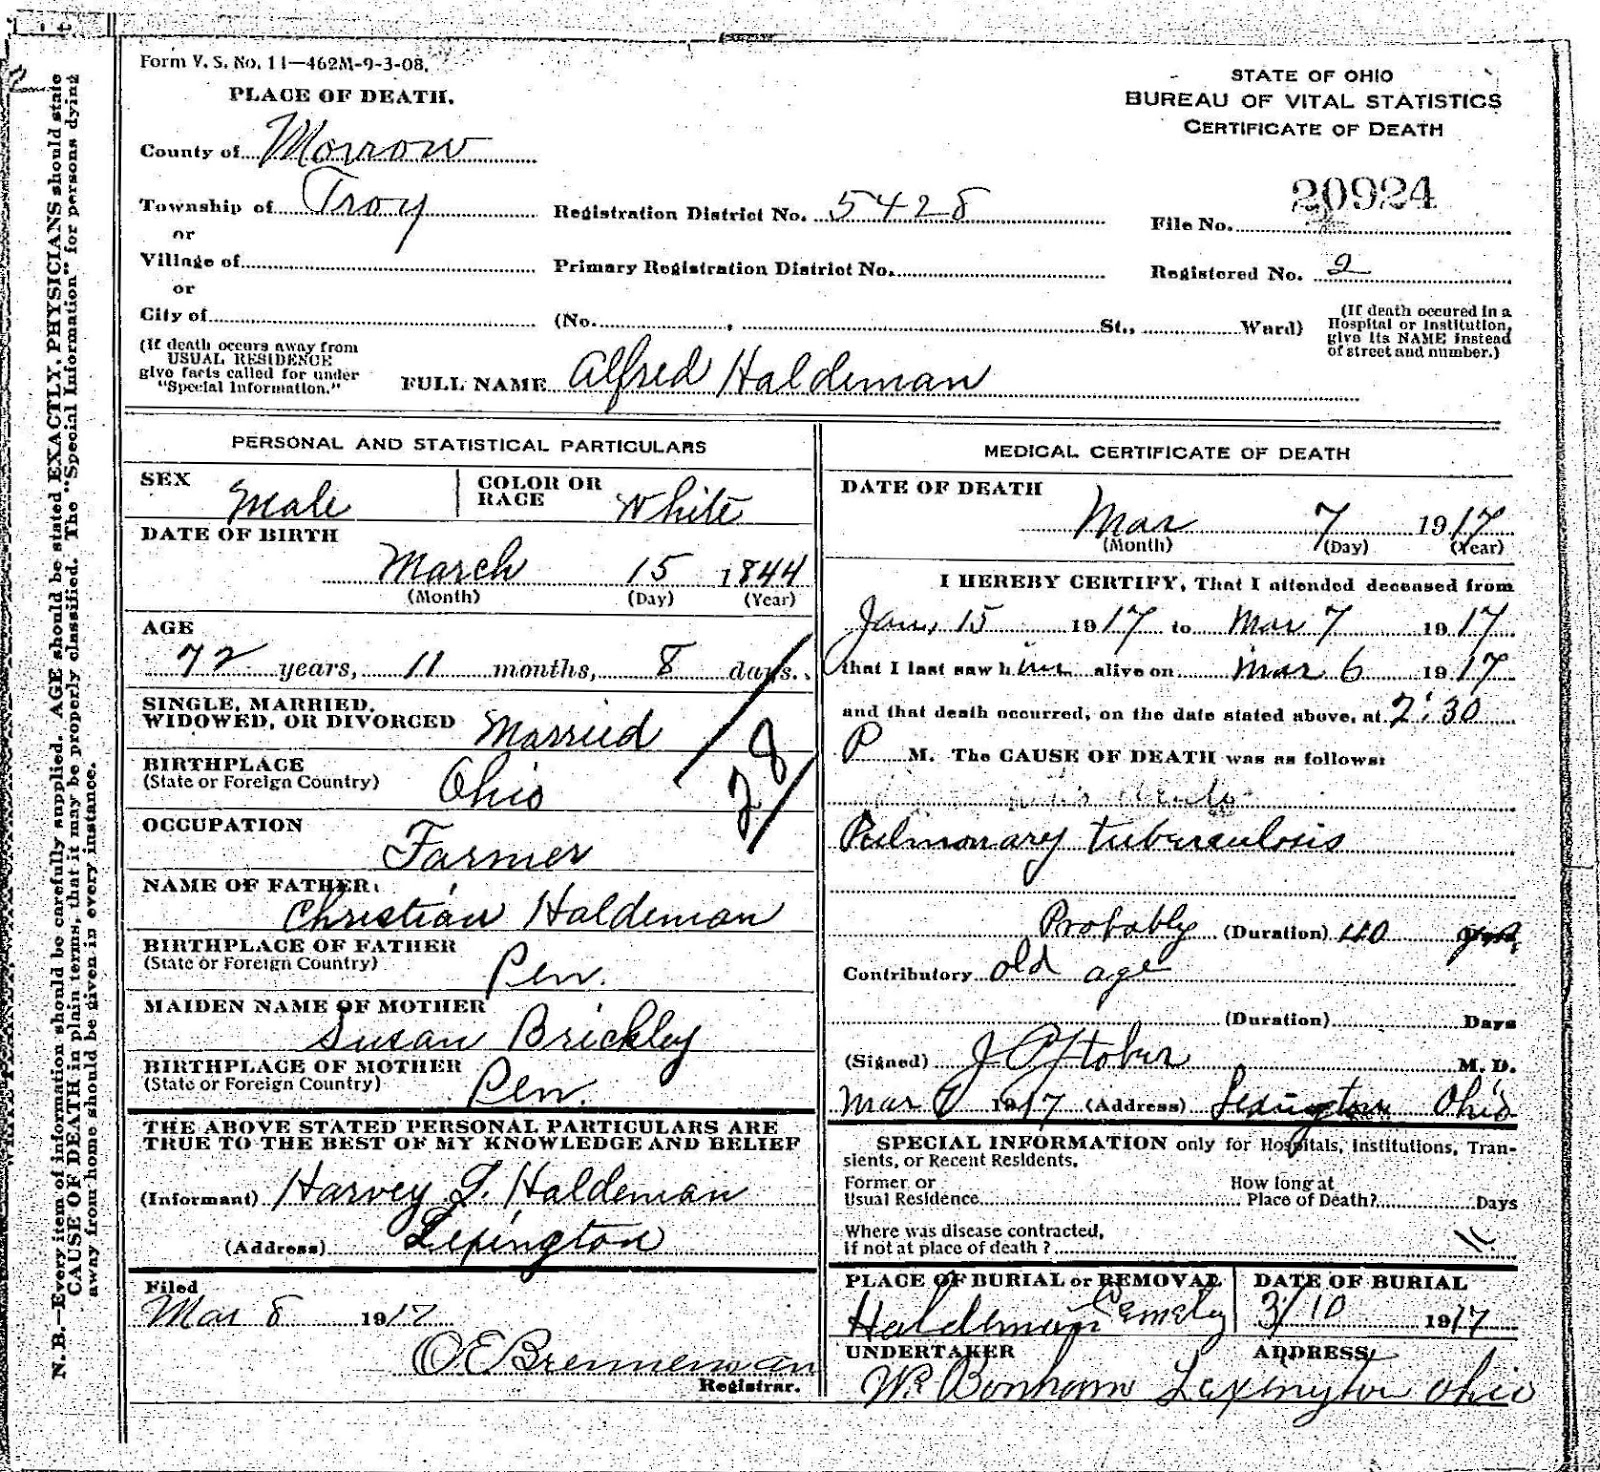 Form V. S. No. 11—462M-9-3-08.
PLACE OF DEATH.
STATE OF OHIO
BUREAU OF VITAL STATISTICS
CERTIFICATE OF DEATH
County of Morrow
Township of Troy
Registration District No. 5428
File No. 20924
or
Village of
Primary Registration District No.
Registered No. 2
or
City of
(No. , St., Ward)
(If death occured in a
Hospital or Institution,
give its NAME instead
of street and number.)
(If death occurs away from
USUAL RESIDENCE
give facts called for under
"Special Information."
FULL NAME Alfred Haldeman
PERSONAL AND STATISTICAL PARTICULARS
SEX Male
COLOR OR
RACE White
DATE OF BIRTH
March 15 1844
(Month) (Day) (Year)
AGE
72 years, 11 months, 8 days.
SINGLE, MARRIED,
WIDOWED, OR DIVORCED Married
28
BIRTHPLACE
(State or Foreign Country) Ohio
OCCUPATION
Farmer
NAME OF FATHER
Christian Haldeman
BIRTHPLACE OF FATHER
(State or Foreign Country) Pen.
MAIDEN NAME OF MOTHER
Susan Brickley
BIRTHPLACE OF MOTHER
(State or Foreign Country) Pen.
THE ABOVE STATED PERSONAL PARTICULARS ARE
TRUE TO THE BEST OF MY KNOWLEDGE AND BELIEF
(Informant) Harvey L. Haldeman
(Address) Lexington
Filed
Mar 8 1917
O.E. Brenneman
Registrar.
MEDICAL CERTIFICATE OF DEATH
DATE OF DEATH
Mar 7 1917
(Month) (Day) (Year)
I HEREBY CERTIFY, That I attended deceased from
Jan. 15 1917 to Mar 7 1917
that I last saw him alive on Mar 6 1917
and that death occurred, on the date stated above, at 2:30
P M. The CAUSE OF DEATH was as follows:
Pulmonary tuberculosis
Probably (Duration) 40 yrs.
Contributory old age
(Duration) Days
(Signed) M. D.
Mar 1917 (Address) Lexington Ohio
SPECIAL INFORMATION only for Hospitals, Institutions, Tran-
sients, or Recent Residents.
Former or
Usual Residence
How long at
Place of Death? Days
Where was disease contracted,
if not at place of death?
PLACE OF BURIAL or REMOVAL
Haldeman
DATE OF BURIAL
3/10 1917
UNDERTAKER
Bonham
ADDRESS
Lexington Ohio
N. B.—Every item of information should be carefully supplied. AGE should be stated EXACTLY. PHYSICIANS should state
CAUSE OF DEATH in plain terms, that it may be properly classified. The "Special Information" for persons dying
away from home should be given in every instance.